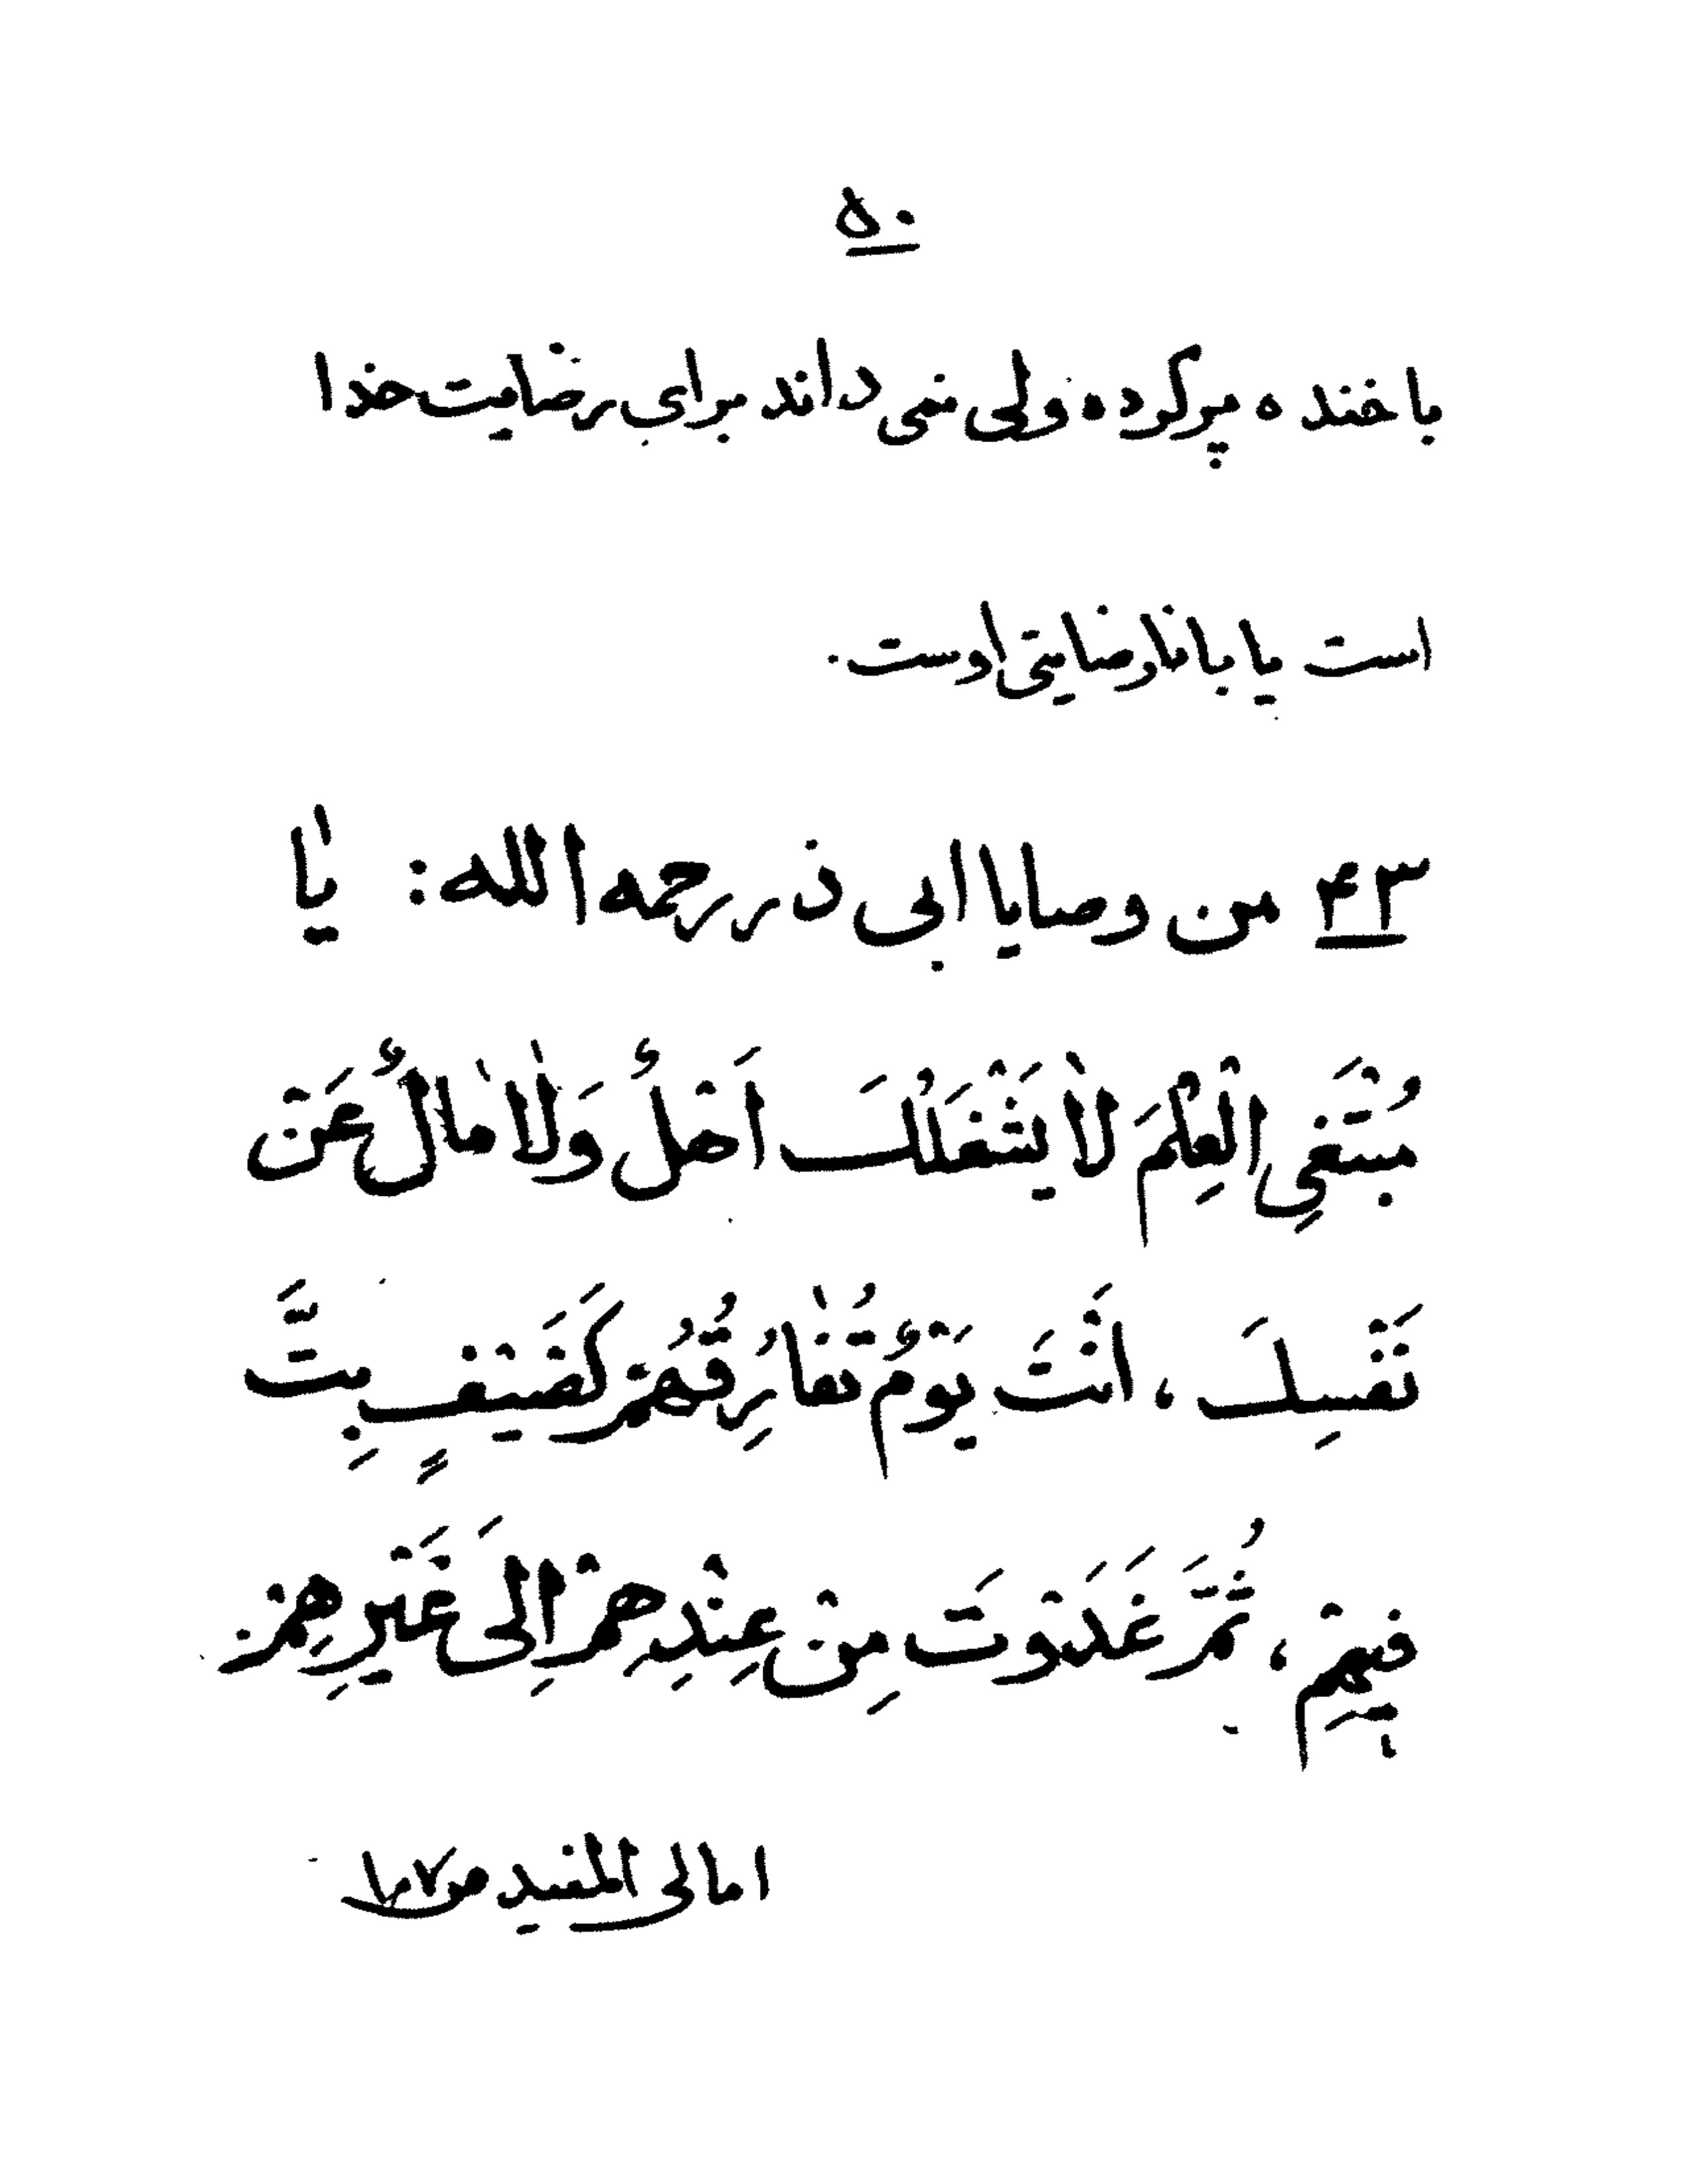 ۵۰
با خنده پر کرده ولی نمی داند برای رضایت خدا
است یا با نارضایتی اوست.
۴۳ من وصایا ابی ذر رحمه الله: یا
مُبْتَغِی الْعِلْمَ لاٰ یَشْغَلُكَ اَهْلٌ وَلاٰ مٰالٌ عَنْ
نَفْسِكَ، اَنْتَ یَوْمٌ تُفٰارِقُهُمْ كَضَیْفٍ بِتَّ
فیهِمْ، ثُمَّ غَدَوْتَ مِنْ عِنْدِهِمْ اِلیَ غَیْرِهِمْ.
امالی المفید ص